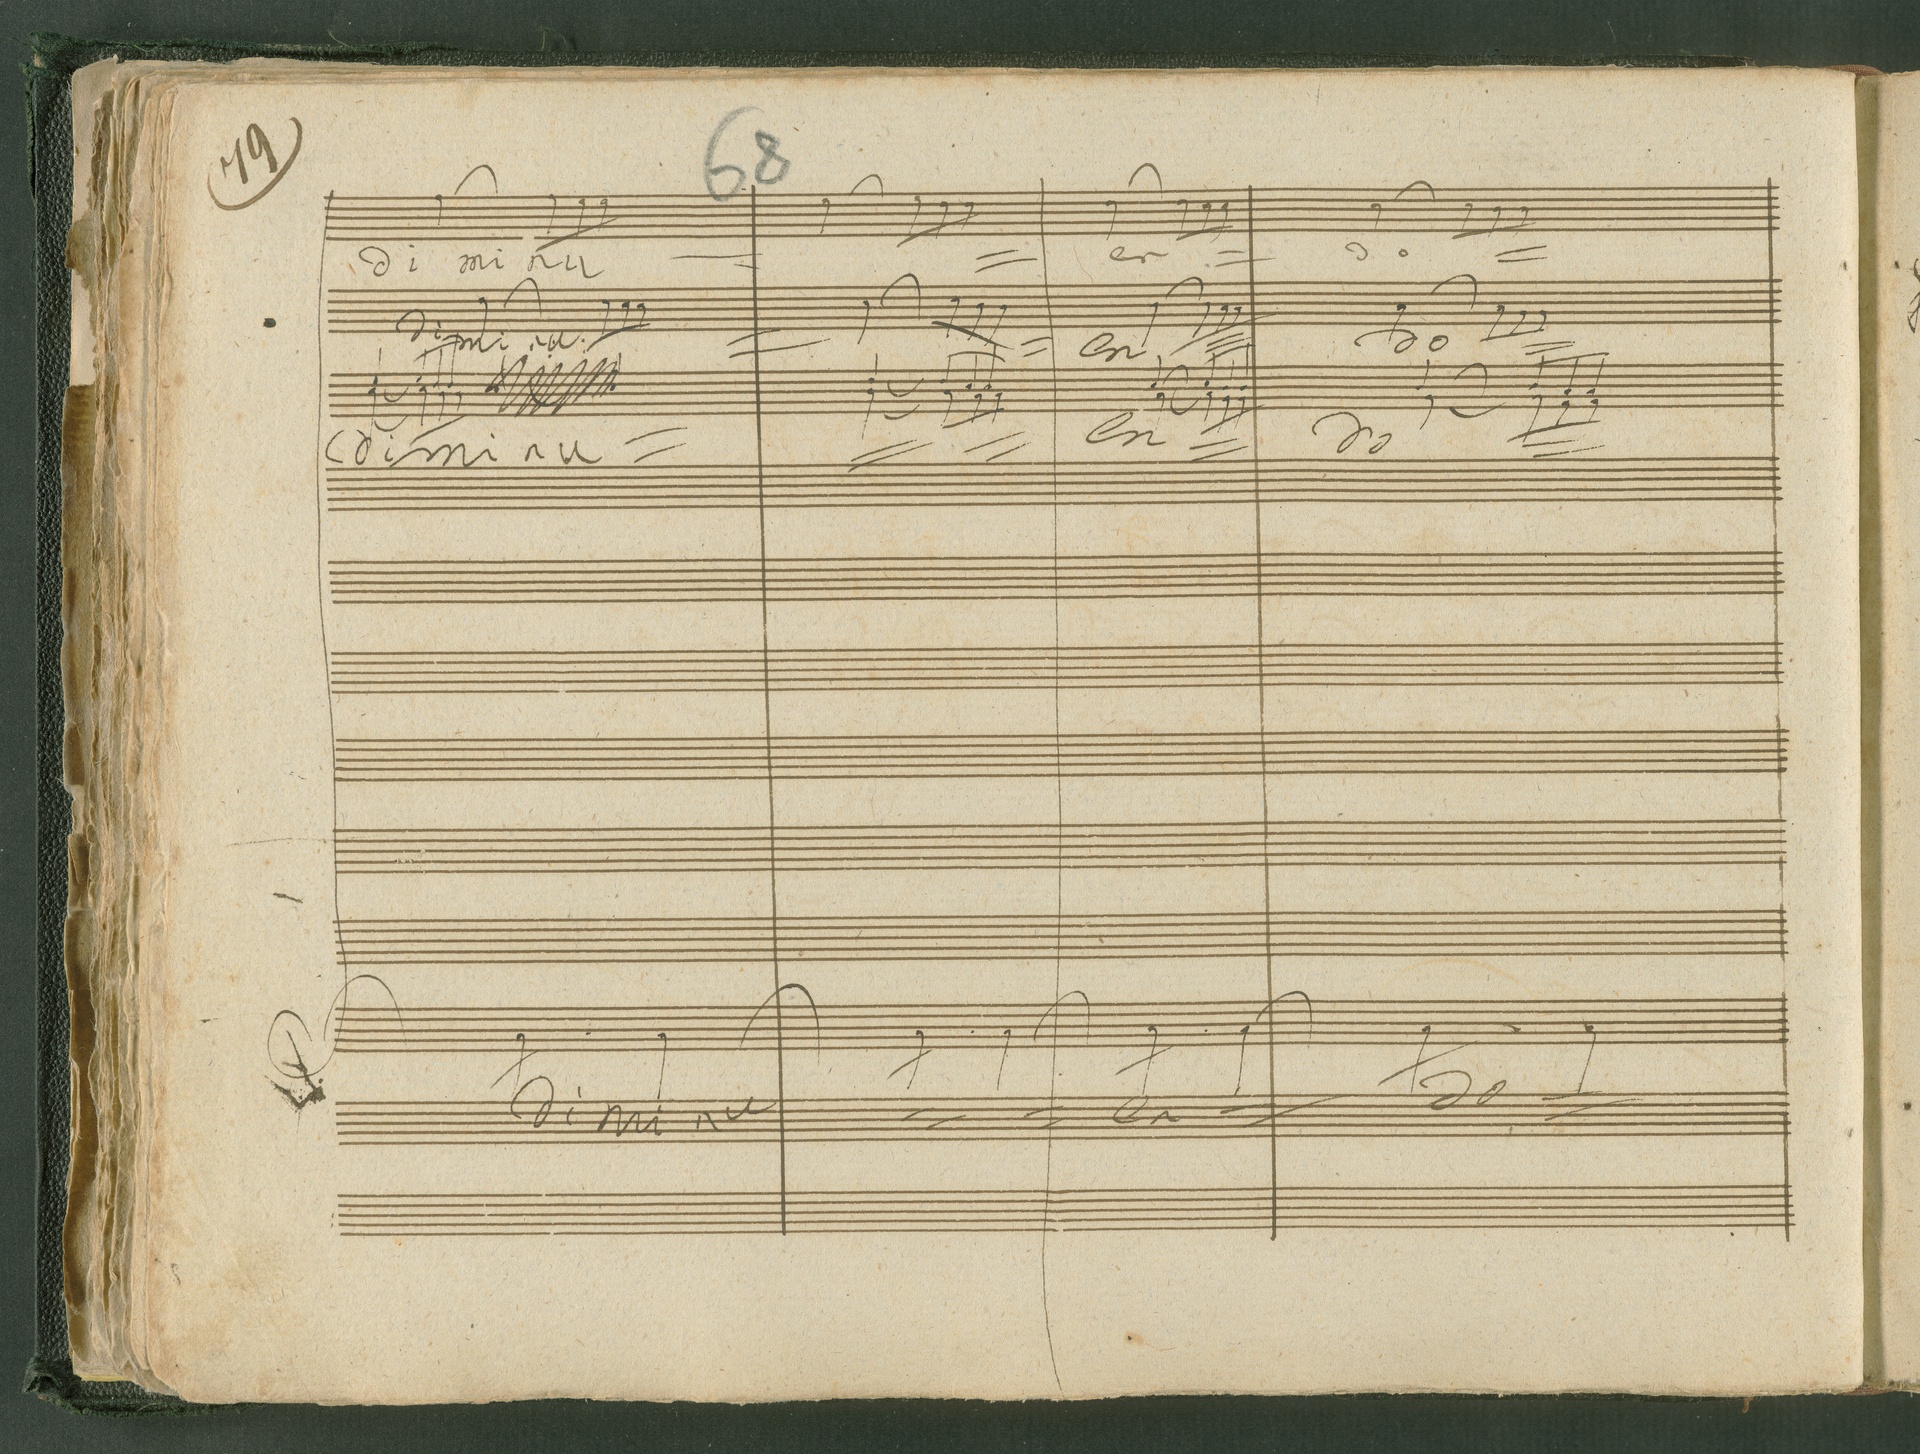 79
68
di mi nu — = en = do =
di mi nu = = en = do =
di mi nu = = = en = do =
di mi nu = = en = do =